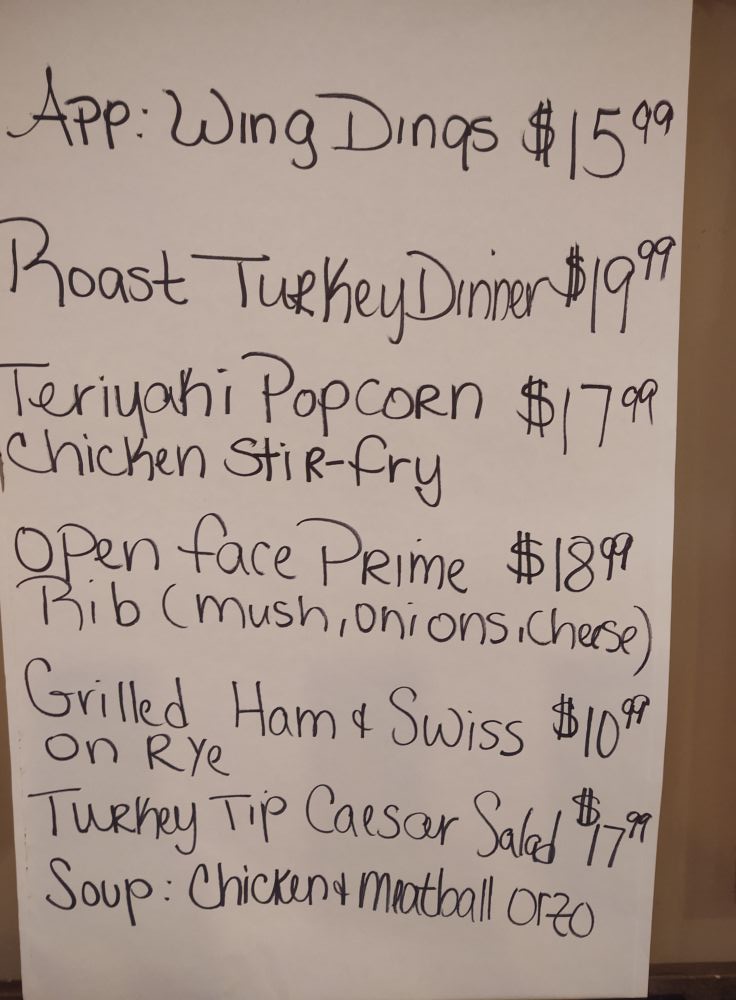 App: Wing Dings $15 99
Roast Turkey Dinner $19 99
Teriyaki Popcorn $17 99
Chicken Stir-fry
Open face Prime $18 99
Rib (mush, onions, cheese)
Grilled Ham & Swiss $10 99
on Rye
Turkey Tip Caesar Salad $17 99
Soup: Chicken & Meatball Orzo